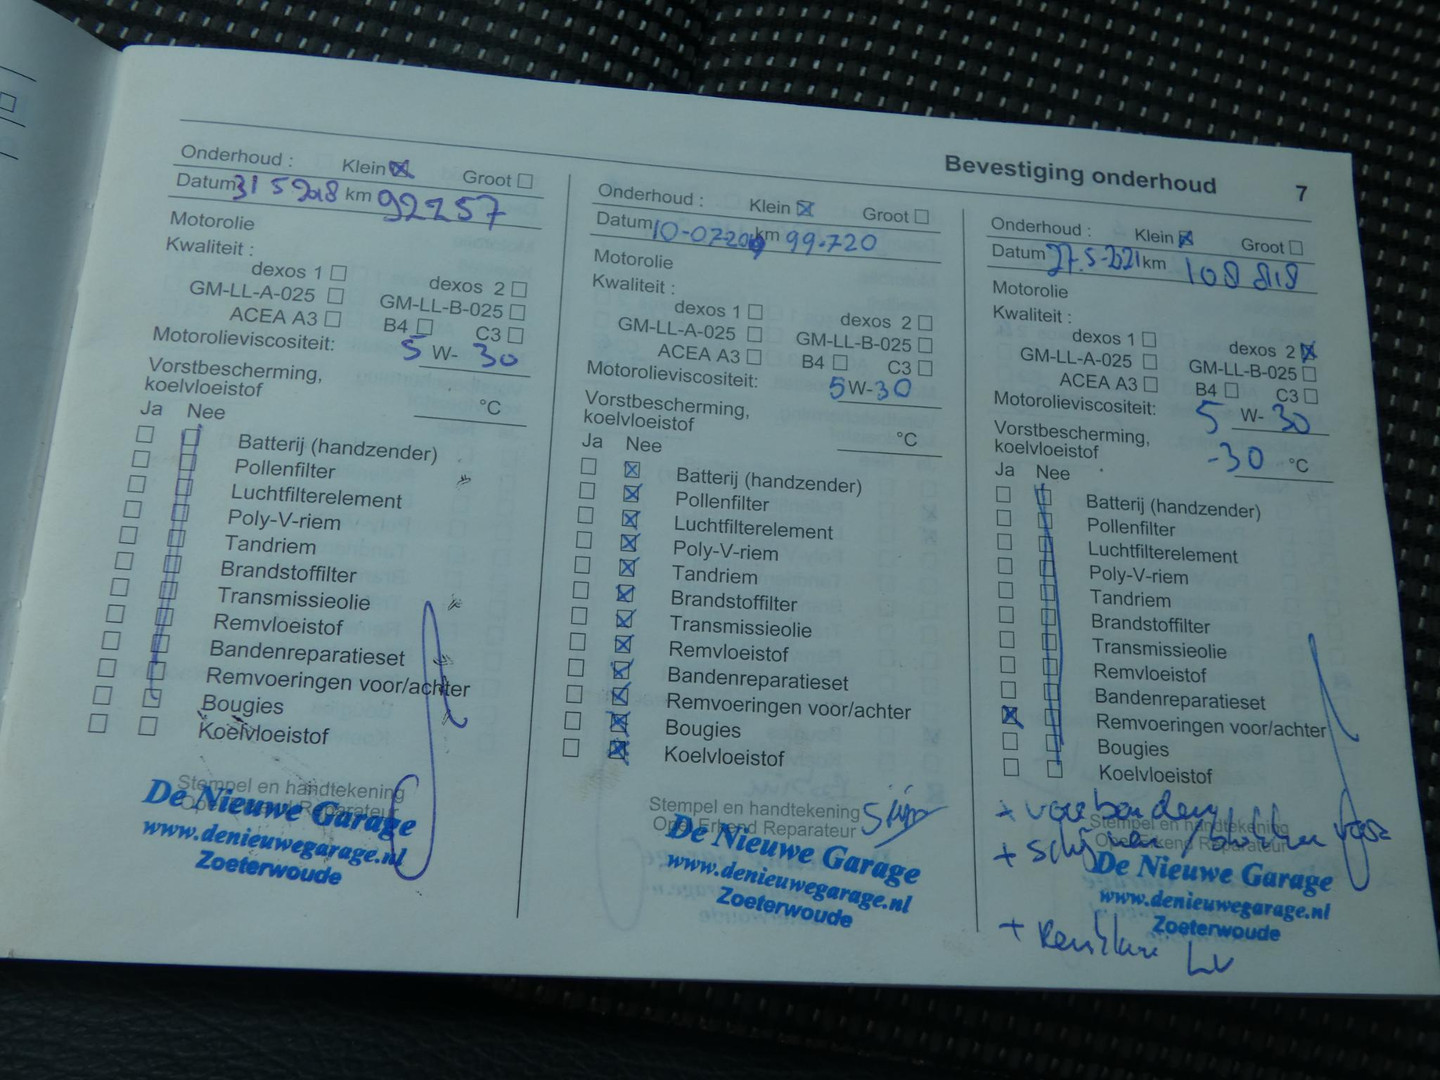 Bevestiging onderhoud 7
Onderhoud : Klein Groot
Datum 31 5 2018 km 92257
Motorolie
Kwaliteit :
dexos 1 dexos 2
GM-LL-A-025 GM-LL-B-025
ACEA A3 B4 C3
Motorolieviscositeit: 5 W- 30
Vorstbescherming,
koelvloeistof °C
Ja Nee
Batterij (handzender)
Pollenfilter
Luchtfilterelement
Poly-V-riem
Tandriem
Brandstoffilter
Transmissieolie
Remvloeistof
Bandenreparatieset
Remvoeringen voor/achter
Bougies
Koelvloeistof
Stempel en handtekening
Reparateur
De Nieuwe Garage
www.denieuwegarage.nl
Zoeterwoude
Onderhoud : Klein Groot
Datum 10-07-2019 km 99.720
Motorolie
Kwaliteit :
dexos 1 dexos 2
GM-LL-A-025 GM-LL-B-025
ACEA A3 B4 C3
Motorolieviscositeit: 5 W- 30
Vorstbescherming,
koelvloeistof °C
Ja Nee
Batterij (handzender)
Pollenfilter
Luchtfilterelement
Poly-V-riem
Tandriem
Brandstoffilter
Transmissieolie
Remvloeistof
Bandenreparatieset
Remvoeringen voor/achter
Bougies
Koelvloeistof
Stempel en handtekening
Opel Erkend Reparateur
De Nieuwe Garage
www.denieuwegarage.nl
Zoeterwoude
Onderhoud : Klein Groot
Datum 27-5-2021 km 108 818
Motorolie
Kwaliteit :
dexos 1 dexos 2
GM-LL-A-025 GM-LL-B-025
ACEA A3 B4 C3
Motorolieviscositeit: 5 W- 30
Vorstbescherming,
koelvloeistof -30 °C
Ja Nee
Batterij (handzender)
Pollenfilter
Luchtfilterelement
Poly-V-riem
Tandriem
Brandstoffilter
Transmissieolie
Remvloeistof
Bandenreparatieset
Remvoeringen voor/achter
Bougies
Koelvloeistof
+ voorbanden
Stempel en handtekening
+ schijven / blokken voor
Opel Erkend Reparateur
De Nieuwe Garage
www.denieuwegarage.nl
Zoeterwoude
+ LV